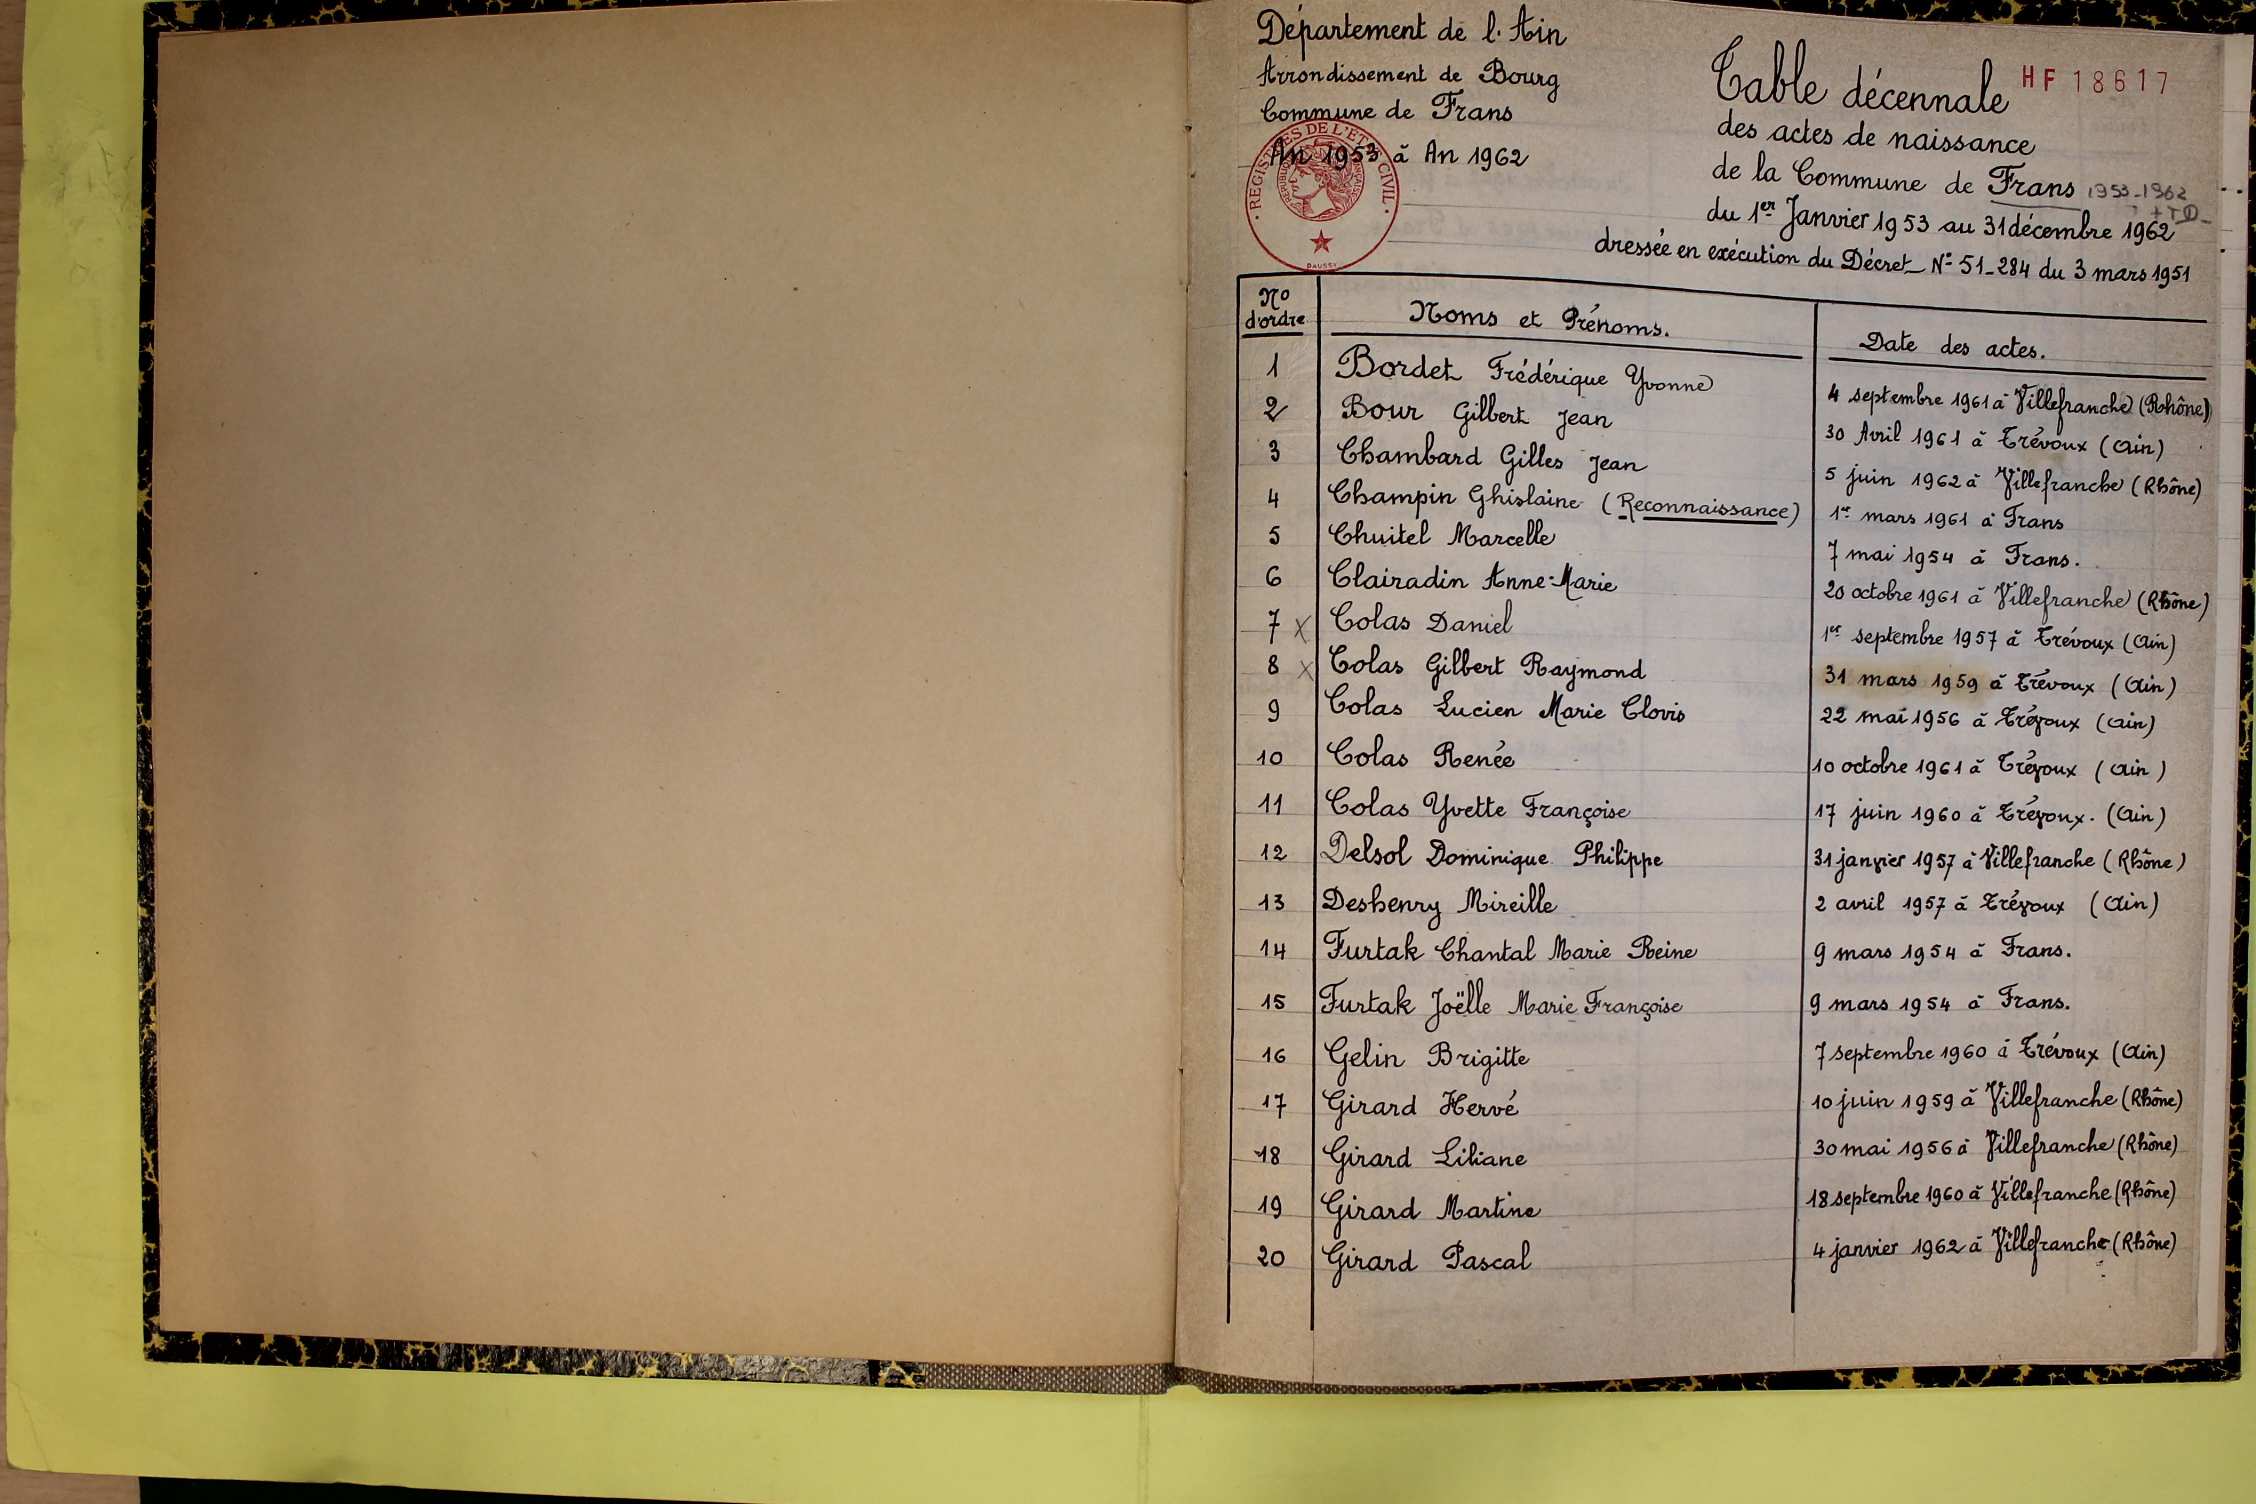 Département de l'Ain
Arrondissement de Bourg
Commune de Frans
An 1953 à An 1962
REGISTRES DE L'ETAT CIVIL
DAUSSY
Table décennale
HF 18617
des actes de naissance
de la Commune de Frans 1953-1962
+TD
du 1er Janvier 1953 au 31 décembre 1962
dressée en exécution du Décret N° 51-284 du 3 mars 1951
N° d'ordre Noms et Prénoms. Date des actes.
1 Bordet Frédérique Yvonne 4 septembre 1961 à Villefranche (Rhône)
2 Bour Gilbert Jean 30 Avril 1961 à Trévoux (Ain)
3 Chambard Gilles Jean 5 juin 1962 à Villefranche (Rhône)
4 Champin Ghislaine (Reconnaissance) 1er mars 1961 à Frans
5 Chuitel Marcelle 7 mai 1954 à Frans.
6 Clairadin Anne-Marie 20 octobre 1961 à Villefranche (Rhône)
7 x Colas Daniel 1er septembre 1957 à Trévoux (Ain)
8 x Colas Gilbert Raymond 31 mars 1959 à Trévoux (Ain)
9 Colas Lucien Marie Clovis 22 mai 1956 à Trévoux (Ain)
10 Colas Renée 10 octobre 1961 à Trévoux (Ain)
11 Colas Yvette Françoise 17 juin 1960 à Trévoux. (Ain)
12 Delsol Dominique Philippe 31 janvier 1957 à Villefranche (Rhône)
13 Deshenry Mireille 2 avril 1957 à Trévoux (Ain)
14 Furtak Chantal Marie Reine 9 mars 1954 à Frans.
15 Furtak Joëlle Marie Françoise 9 mars 1954 à Frans.
16 Gelin Brigitte 7 septembre 1960 à Trévoux (Ain)
17 Girard Hervé 10 juin 1959 à Villefranche (Rhône)
18 Girard Liliane 30 mai 1956 à Villefranche (Rhône)
19 Girard Martine 18 septembre 1960 à Villefranche (Rhône)
20 Girard Pascal 4 janvier 1962 à Villefranche (Rhône)